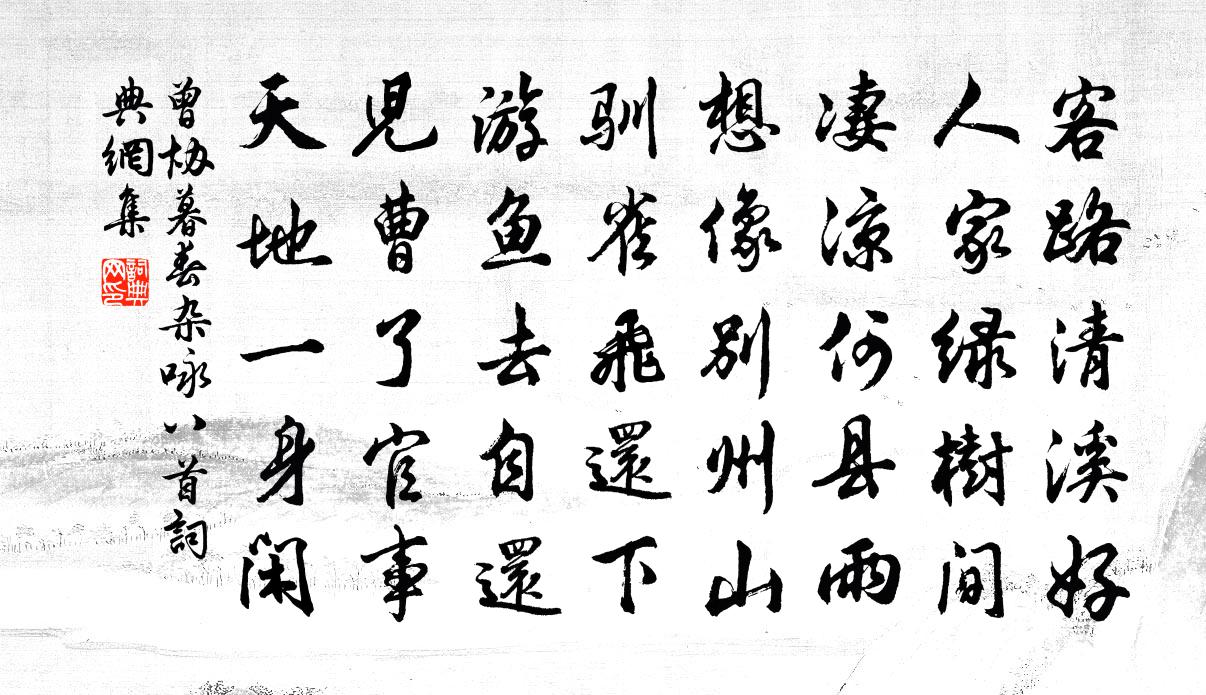 客路清溪好
人家绿樹间
凄凉何县雨
想像别州山
馴雀飛還下
游鱼去自還
兒曹了官事
天地一身閑
曾协暮春杂咏八首詞
典網集
詞典网印